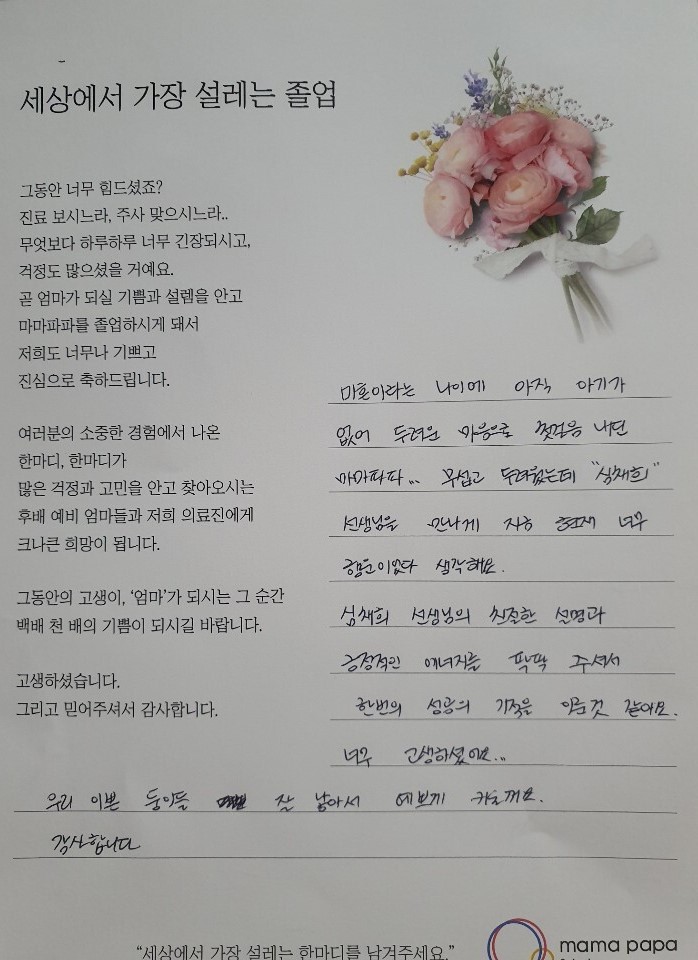 세상에서 가장 설레는 졸업
그동안 너무 힘드셨죠?
진료 보시느라, 주사 맞으시느라..
무엇보다 하루하루 너무 긴장되시고,
걱정도 많으셨을 거예요.
곧 엄마가 되실 기쁨과 설렘을 안고
마마파파를 졸업하시게 돼서
저희도 너무나 기쁘고
진심으로 축하드립니다.
여러분의 소중한 경험에서 나온
한마디, 한마디가
많은 걱정과 고민을 안고 찾아오시는
후배 예비 엄마들과 저희 의료진에게
크나큰 희망이 됩니다.
그동안의 고생이, ‘엄마’가 되시는 그 순간
백배 천 배의 기쁨이 되시길 바랍니다.
고생하셨습니다.
그리고 믿어주셔서 감사합니다.
이라는 나이에 아직 아기가
없어 두려운 마음으로 첫걸음 내딘
마마파파... 무섭고 두려웠는데 "심채희"
선생님을 만나게 현재 너무
행운이었다 생각해요.
심채희 선생님의 친절한 설명과
긍정적인 에너지를 팍팍 주셔서
한번의 성공의 기적을 이룬것 같아요.
너무 고생하셨어요...
우리 이쁜 둥이들 잘 낳아서 예쁘게 키울께요.
감사합니다
“세상에서 가장 설레는 한마디를 남겨주세요.”
mama papa